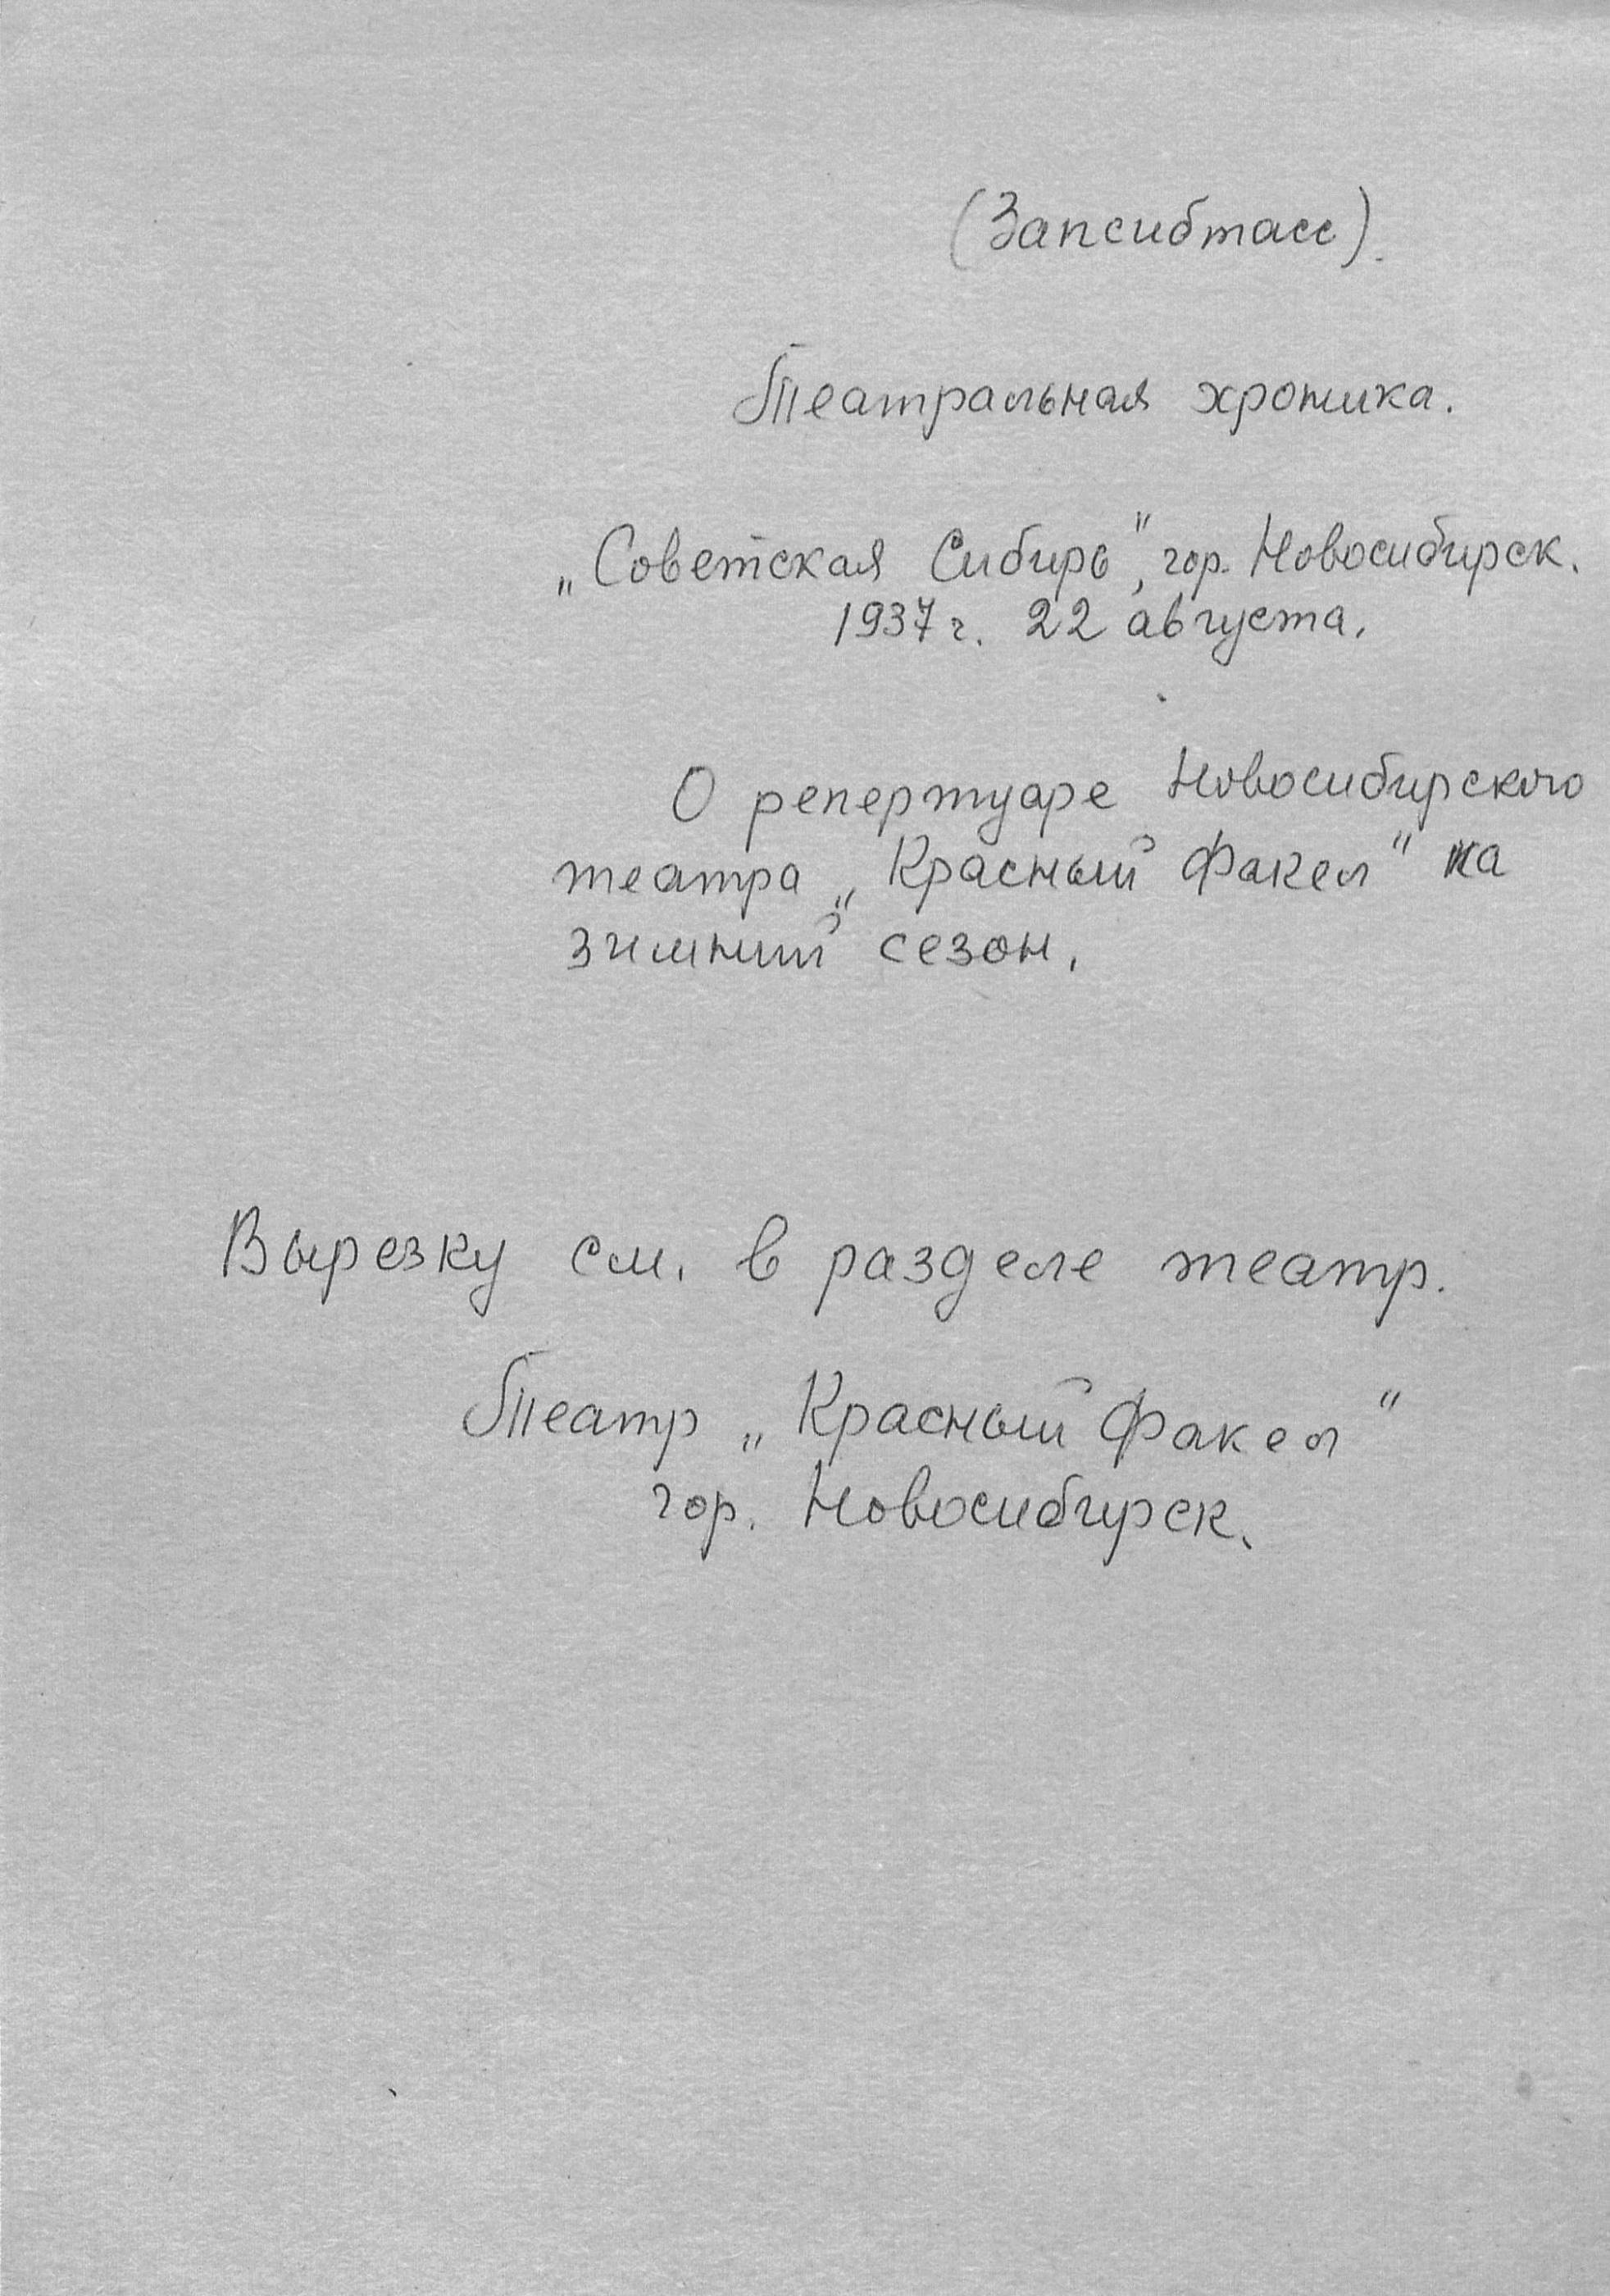 (Запсибтасс).
Театральная хроника.
„Советская Сибирь", гор. Новосибирск.
1937 г. 22 августа.
О репертуаре Новосибирского
театра „Красный Факел" на
зимний сезон.
Вырезку см. в разделе театр.
Театр „Красный Факел"
гор. Новосибирск.